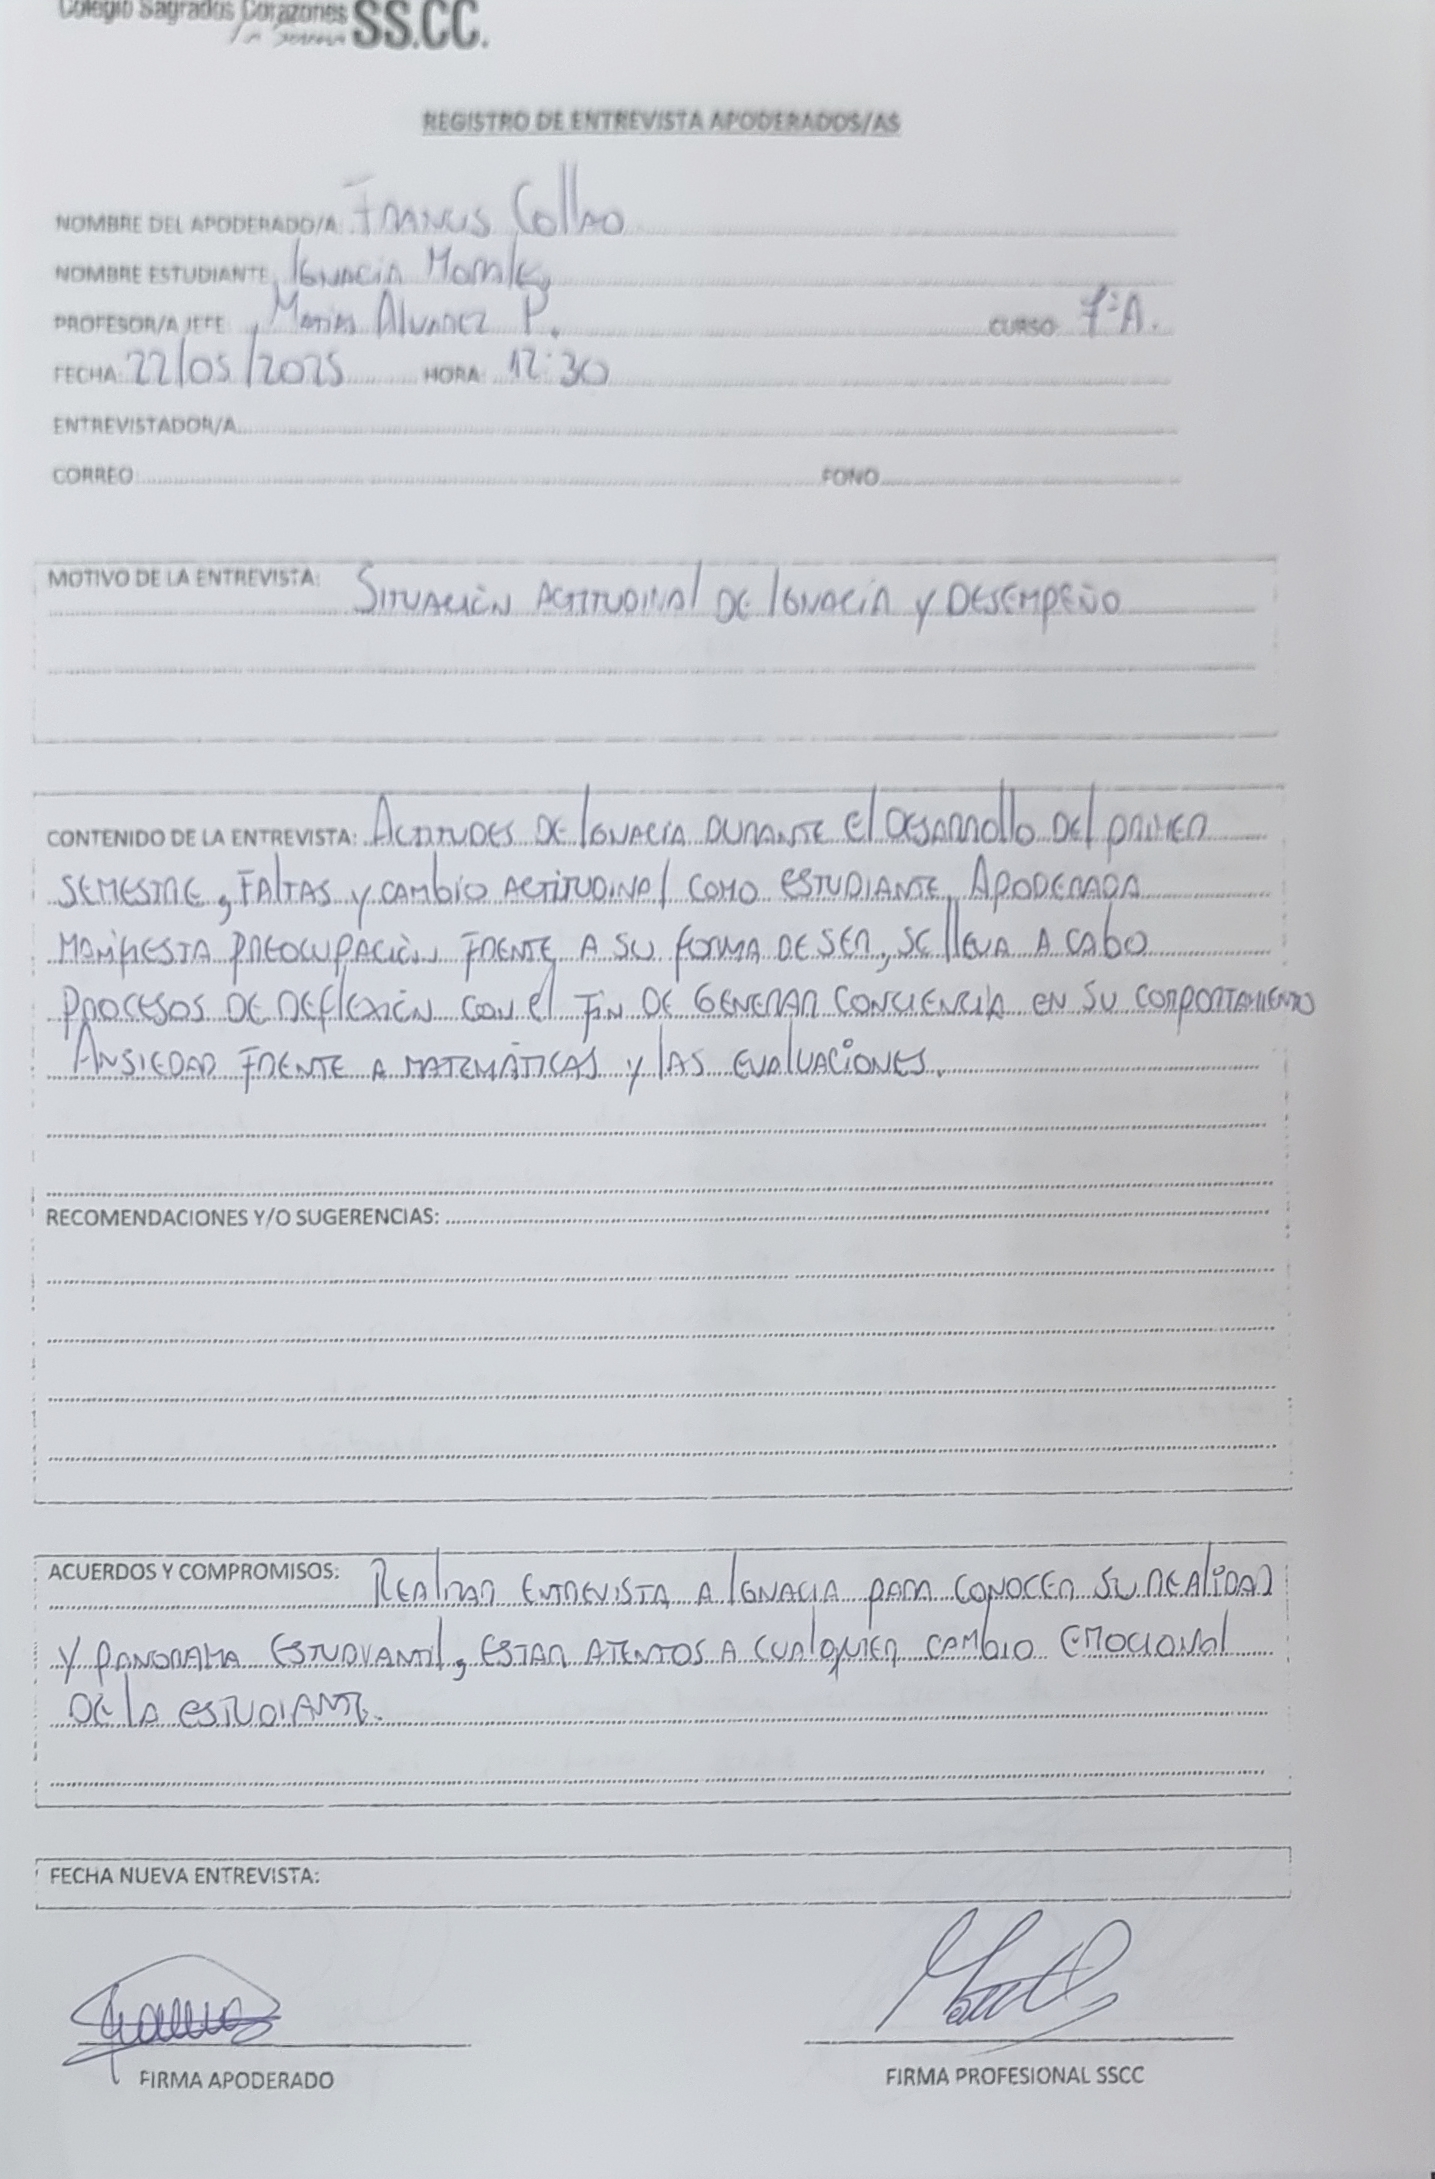 Colegio Sagrados Corazones SS.CC.
La Serena
REGISTRO DE ENTREVISTA APODERADOS/AS
NOMBRE DEL APODERADO/A: Francis Collao
NOMBRE ESTUDIANTE Ignacia Morales
PROFESOR/A JEFE: Matías Alvarez P. CURSO 7°A.
FECHA: 22/05/2025 HORA: 12:30
ENTREVISTADOR/A
CORREO FONO
MOTIVO DE LA ENTREVISTA: SITUACIÓN ACTITUDINAL DE IGNACIA Y DESEMPEÑO
CONTENIDO DE LA ENTREVISTA: ACTITUDES DE IGNACIA DURANTE El DESARROllO DEl PRIMER
SEMESTRE, FALTAS y CAMBIO ACTITUDINAl COMO ESTUDIANTE, APODERADA
MANIFIESTA PREOCUPACIÓN FRENTE A SU FORMA DE SER, SE llEVA A CABO
PROCESOS DE REFLEXIÓN CON El FIN DE GENERAR CONCIENCIA EN SU COMPORTAMIENTO
ANSIEDAD FRENTE A MATEMÁTICAS y lAS EVALUACIONES.
RECOMENDACIONES Y/O SUGERENCIAS:
ACUERDOS Y COMPROMISOS: REALIZAR ENTREVISTA A IGNACIA PARA CONOCER SU REALIDAD
Y PANORAMA ESTUDIANTIL, ESTAR ATENTOS A CUALQUIER CAMBIO EMOCIONAL
DE LA ESTUDIANTE.
FECHA NUEVA ENTREVISTA:
FIRMA APODERADO FIRMA PROFESIONAL SSCC